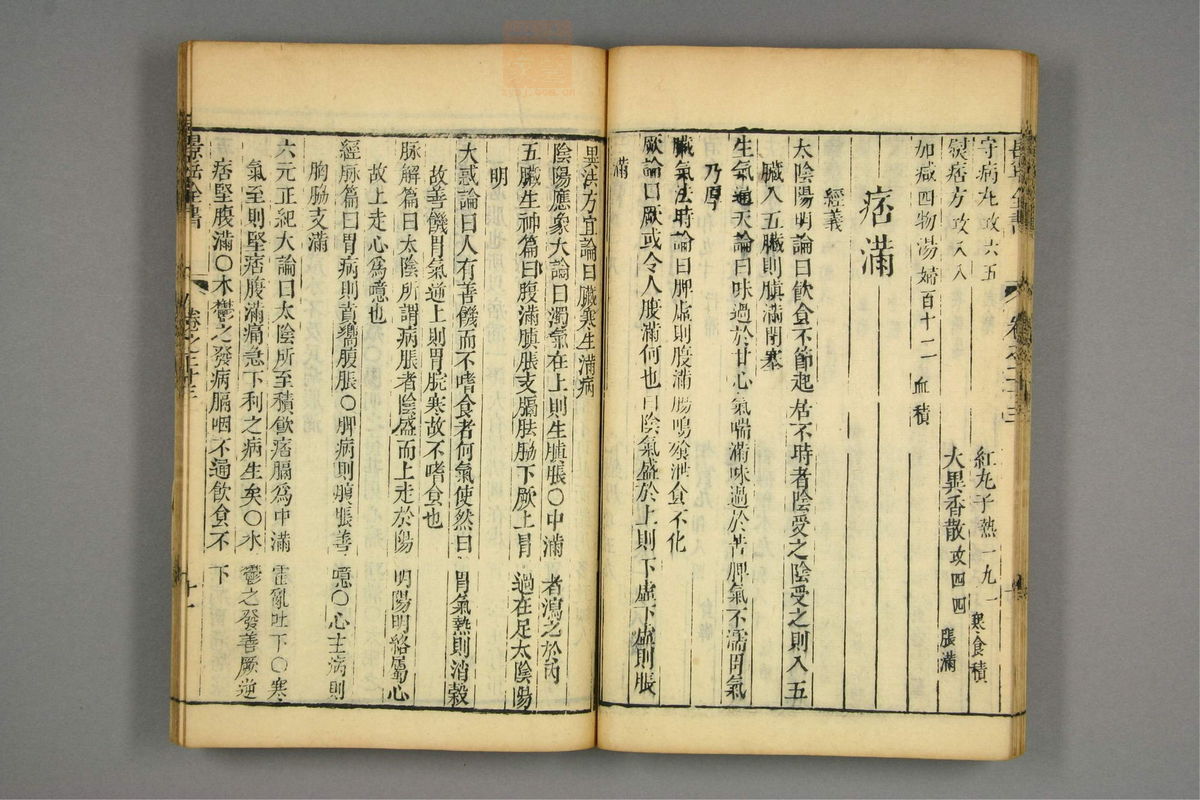 景岳全書 卷之二十三
守病丸攻六五 紅丸子熱一九一 寒食積
熨痞方攻八八 大異香散攻四四 脹滿
加減四物湯婦百十二 血積
痞滿
經義
太陰陽明論曰飲食不節起居不時者陰受之陰受之則入五
臟入五臟則䐜滿閉塞
生氣通天論曰味過於甘心氣喘滿味過於苦脾氣不濡胃氣
乃厚
臟氣法時論曰脾虛則腹滿腸鳴飧泄食不化
厥論曰厥或令人腹滿何也曰陰氣盛於上則下虛下虛則脹
滿
異法方宜論曰臟寒生滿病
陰陽應象大論曰濁氣在上則生䐜脹〇中滿者瀉之於內
五臟生神篇曰腹滿䐜脹支膈胠脇下厥上冒過在足太陰陽
明
大惑論曰人有善饑而不嗜食者何氣使然曰胃氣熱則消穀
故善饑胃氣逆上則胃脘寒故不嗜食也
脉解篇曰太陰所謂病脹者陰盛而上走於陽明陽明絡屬心
故上走心爲噫也
經脉篇曰胃病則賁響腹脹〇脾病則腹脹善噫〇心主病則
胸脇支滿
六元正紀大論曰太陰所至積飲痞膈爲中滿霍亂吐下〇寒
氣至則堅痞腹滿痛急下利之病生矣〇水鬱之發善厥逆
痞堅腹滿〇木鬱之發病膈咽不通飲食不下
景岳全書 卷之二十三 十一